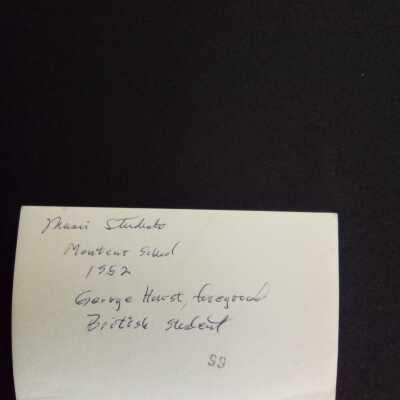 Music Students
Monteux School
1952
George Hurst, foreground
British student
SS